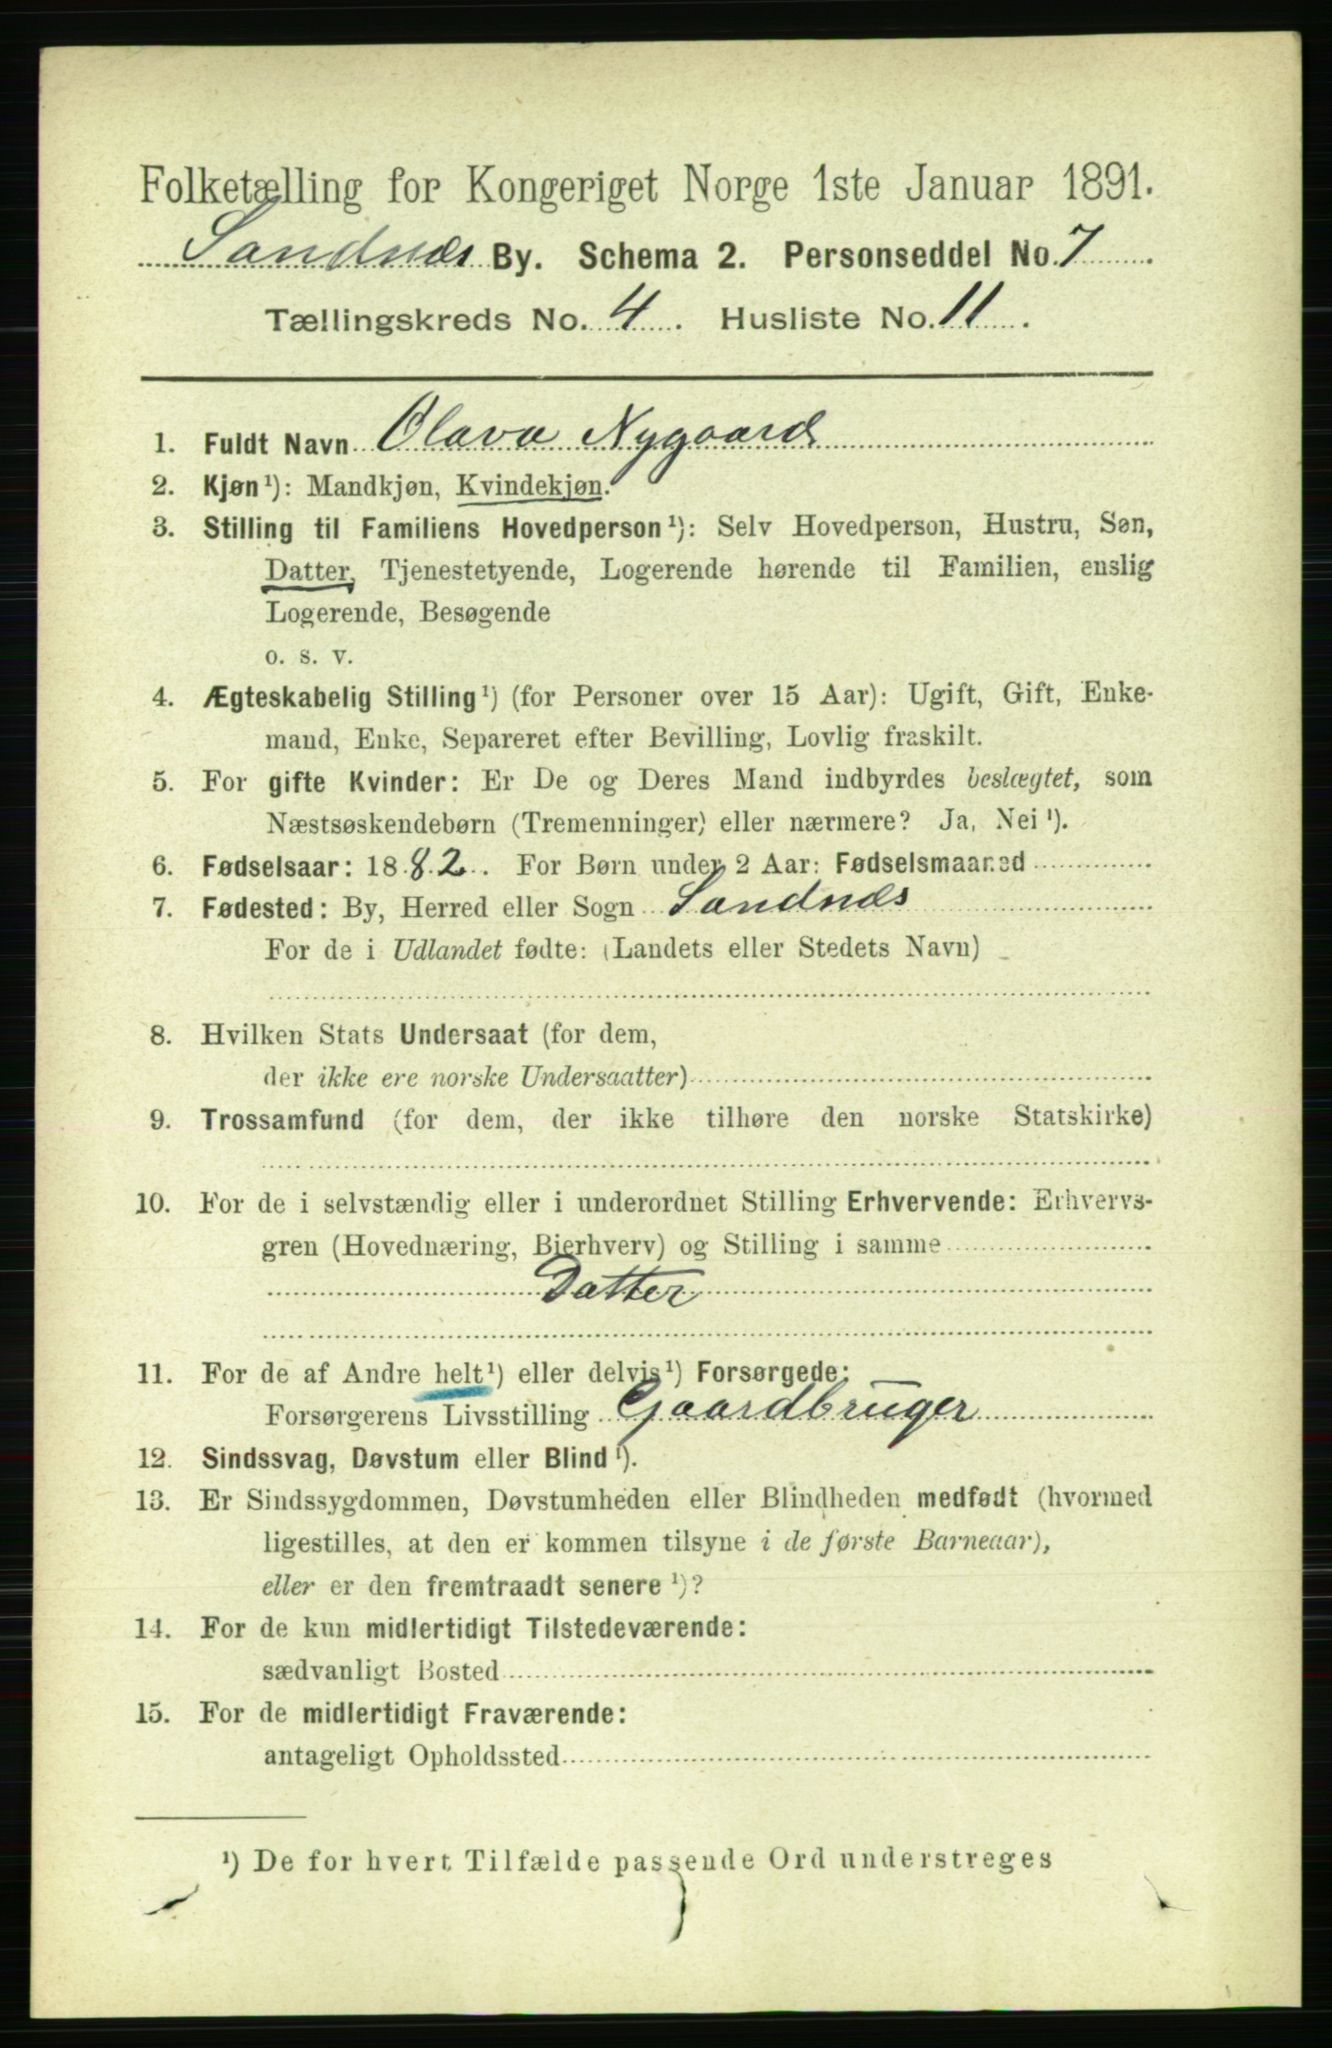 Folketælling for Kongeriget Norge 1ste Januar 1891.
Sandnæs By. Schema 2. Personseddel No. 7
Tællingskreds No. 4. Husliste No. 11.
1. Fuldt Navn Olava Nygaard
2. Kjøn¹): Mandkjøn, Kvindekjøn.
3. Stilling til Familiens Hovedperson¹): Selv Hovedperson, Hustru, Søn,
Datter, Tjenestetyende, Logerende hørende til Familien, enslig
Logerende, Besøgende
o. s. v.
4. Ægteskabelig Stilling¹) (for Personer over 15 Aar): Ugift, Gift, Enke-
mand, Enke, Separeret efter Bevilling, Lovlig fraskilt.
5. For gifte Kvinder: Er De og Deres Mand indbyrdes beslægtet, som
Næstsøskendebørn (Tremenninger) eller nærmere? Ja, Nei¹).
6. Fødselsaar: 1882. For Børn under 2 Aar: Fødselsmaaned
7. Fødested: By, Herred eller Sogn Sandnæs
For de i Udlandet fødte: (Landets eller Stedets Navn)
8. Hvilken Stats Undersaat (for dem,
der ikke ere norske Undersaatter)
9. Trossamfund (for dem, der ikke tilhøre den norske Statskirke)
10. For de i selvstændig eller i underordnet Stilling Erhvervende: Erhvervs-
gren (Hovednæring, Bierhverv) og Stilling i samme
Datter
11. For de af Andre helt¹) eller delvis¹) Forsørgede:
Forsørgerens Livsstilling Gaardbruger
12. Sindssvag, Døvstum eller Blind¹).
13. Er Sindssygdommen, Døvstumheden eller Blindheden medfødt (hvormed
ligestilles, at den er kommen tilsyne i de første Barneaar),
eller er den fremtraadt senere¹)?
14. For de kun midlertidigt Tilstedeværende:
sædvanligt Bosted
15. For de midlertidigt Fraværende:
antageligt Opholdssted
¹) De for hvert Tilfælde passende Ord understreges